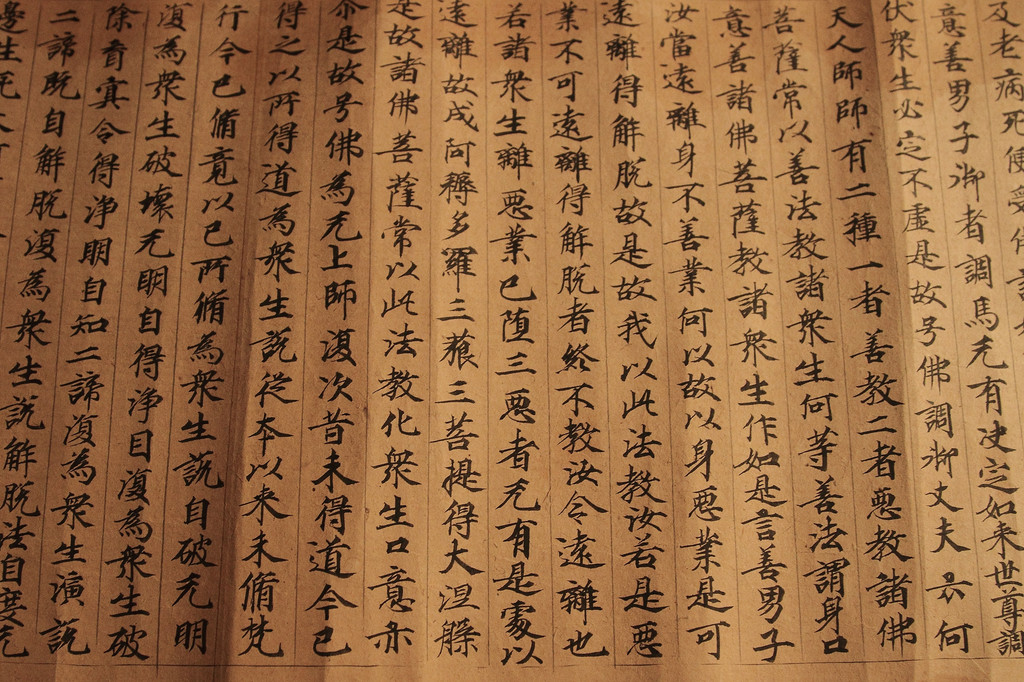 及老病死便受
意善男子御者調馬无有决定如来世尊調
伏衆生必定不虛是故号佛調御丈夫云何
天人師師有二種一者善教二者惡教諸佛
菩薩常以善法教諸衆生何等善法謂身口
意善諸佛菩薩教諸衆生作如是言善男子
汝當遠離身不善業何以故以身惡業是可
遠離得解脫故是故我以此法教汝若是惡
業不可遠離得解脫者終不教汝令遠離也
若諸衆生離惡業已堕三惡者无有是處以
遠離故成阿耨多羅三藐三菩提得大涅槃
是故諸佛菩薩常以此法教化衆生口意亦
尒是故号佛為无上師復次昔未得道今已
得之以所得道為衆生說從本以来未脩梵
行今已脩竟以已所脩為衆生說自破无明
復為衆生破壞无明自得淨目復為衆生破
除盲冥令得淨明自知二諦復為衆生演說
二諦既自解脫復為衆生說解脫法自度无
邊生死